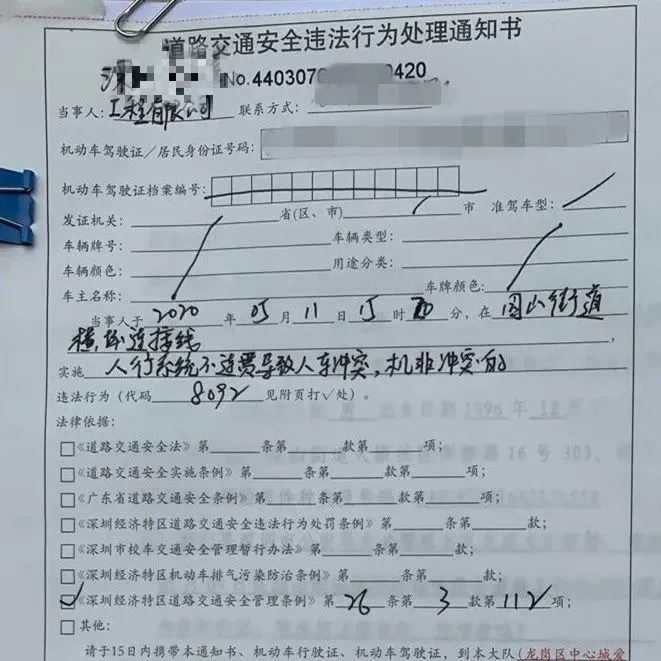 道路交通安全违法行为处理通知书
No. 440307 0420
当事人：工程有限公司 联系方式：
机动车驾驶证／居民身份证号码：
机动车驾驶证档案编号：
发证机关： 省(区、市) 市 准驾车型：
车辆牌号： 车辆类型：
车辆颜色： 用途分类：
车主名称： 车牌颜色：
当事人于 2020 年 05 月 11 日 15 时 20 分，在 园山街道
连接线
实施 人行系统不连贯导致人车冲突，机非冲突的
违法行为（代码 8092 见附页打√处）。
法律依据：
□《道路交通安全法》第 条第 款第 项；
□《道路交通安全实施条例》第 条第 款第 项；
□《广东省道路交通安全条例》第 条第 款第 项；
□《深圳经济特区道路交通安全违法行为处罚条例》第 条第 款；
□《深圳市校车交通安全管理暂行办法》第 条第 款；
□《深圳经济特区机动车排气污染防治条例》第 条第 款；
☑《深圳经济特区道路交通安全管理条例》第 26 条第 3 款第 112 项；
□其他：
请于15日内携带本通知书、机动车行驶证、机动车驾驶证，到本大队(龙岗区中心城爱